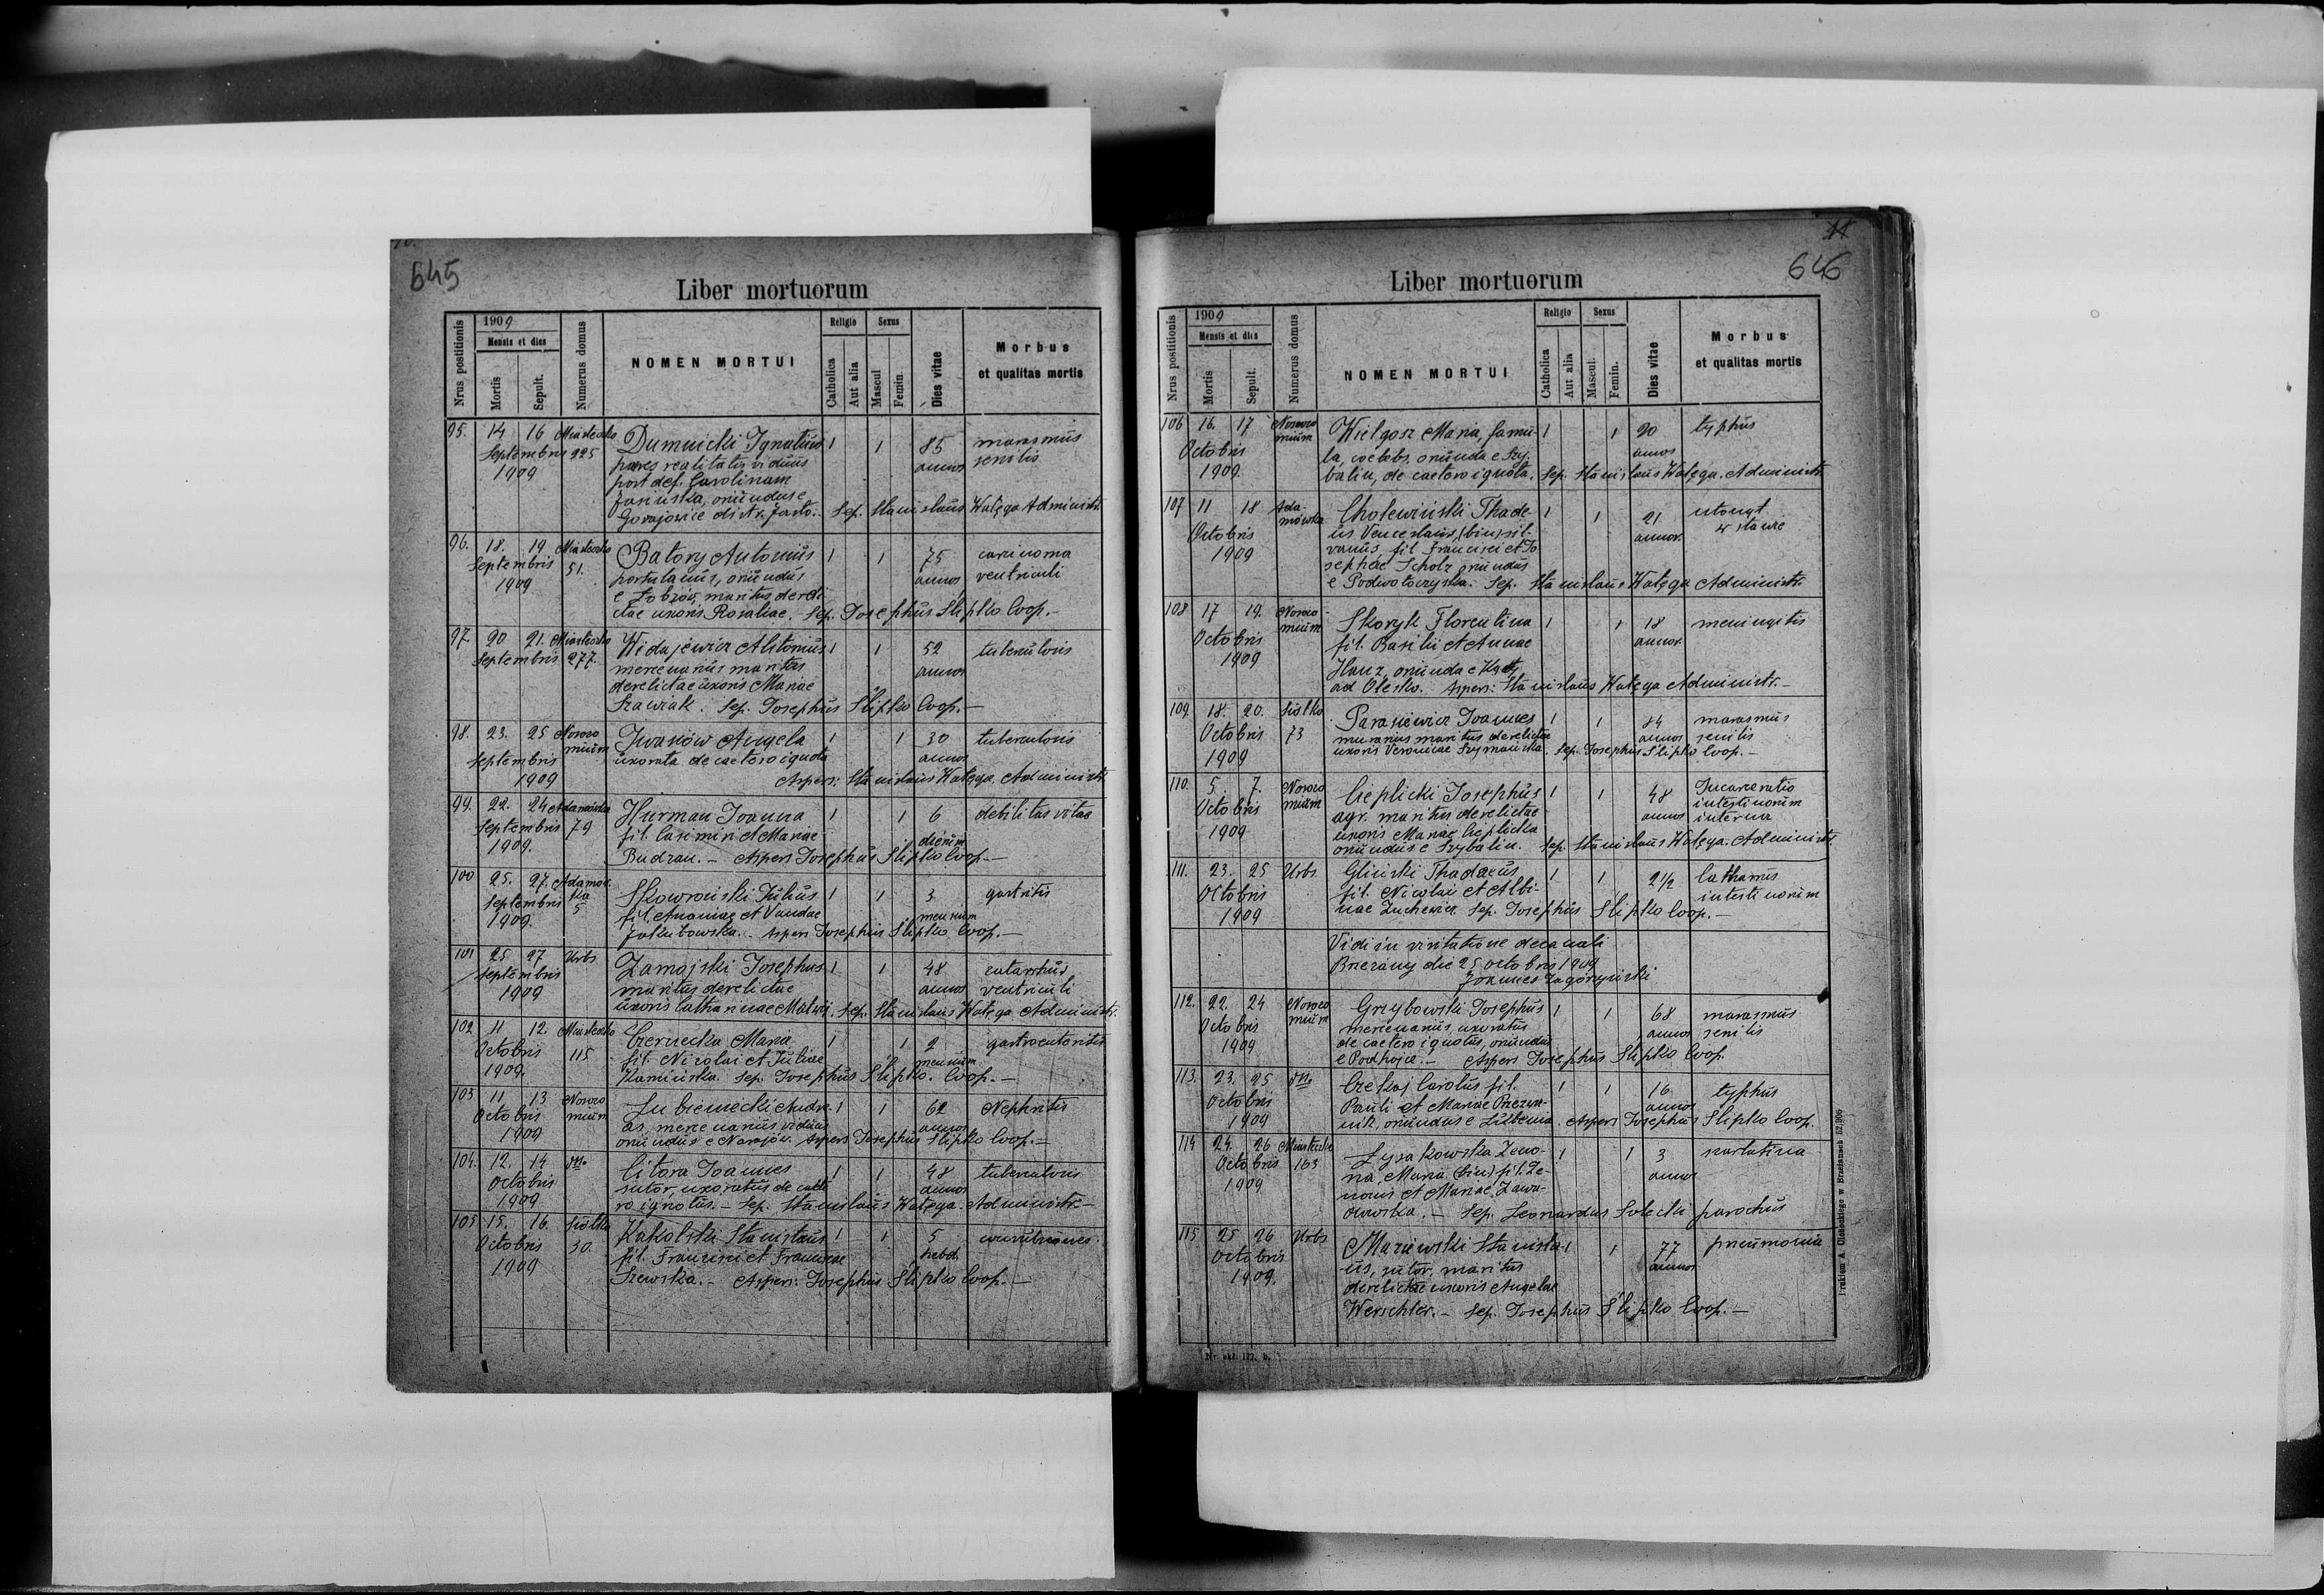 645
Liber mortuorum
Nrus postitionis
1909
Mensis et dies
Mortis
Sepult.
Numerus domus
NOMEN MORTUI
Religio
Catholica
Aut alia
Sexus
Mascul
Femin.
Dies vitae
Morbus
et qualitas mortis
95. 14 16 Miasteczko Dumnicki Ignatius 1 1 85 marasmus
Septembris 225 viduus annos senilis
1909 post def. Carolinam
oriundus e
distr. Jasło. Sep. Stanislaus Wałęga Administr.
96. 18. 19 Miasteczko Batory Antonius 1 1 75 carcinoma
Septembris 51. oriundus annos ventriculi
1909 maritus dereli
ctae uxoris Rosaliae. Sep. Josephus Ślipko Coop. —
97. 20 21. Miasteczko Widajewicz Antonius 1 1 52 tuberculosis
Septembris 277. mercenarius maritus annos
derelictae uxoris Mariae
Szawiak. Sep. Josephus Ślipko Coop. —
98. 23. 25 Nosoco Iwanów Angela 1 1 30 tuberculosis
mium
Septembris uxorata de caetero ignota annos
1909 Aspers: Stanislaus Wałęga Administr.
99. 22. 24 Adamówka Hurman Joanna 1 1 6 debilitas vitae
Septembris 79 fil. Casimiri et Mariae dierum
1909. Budzan. — Aspers Josephus Ślipko Coop. —
100 25. 27. Adamów Skowroński Julius 1 1 3 gastritis
ka
Septembris 5 fil. Ananiae et Vandae mensium
1909. Jakubowska. Aspers Josephus Ślipko Coop. —
101 25 27 Urbs Zamojski Josephus 1 1 48 catarrhus
Septembris maritus derelictae annos ventriculi
1909 uxoris Catharinae Matwij. Sep. Stanislaus Wałęga Administr.
102 11 12. Miasteczko Czernecka Maria 1 1 2 gastroenteritis
Octobris 115 fil. Nicolai et Juliae mensium
1909. Kamińska. Sep. Josephus Ślipko. Coop. —
103 11 13 Nosoco Lubieniecki Andre- 1 1 62 Nephritis
Octobris mium as, mercenarius viduus annos
1909 oriundus e Narajów. Aspers Josephus Ślipko Coop. —
104. 12. 14 Citora Joannes 1 1 48 tuberculosis
Octobris sutor, uxoratus de caete annos
1909 ro ignotus. — Sep. Stanislaus Wałęga. Administr. —
105 15. 16. Siółko Kakolski Stanislaus 1 1 5 convulsiones.
Octobris 30. fil. Francisci et Franciscae hebd.
1909 Szewska. — Aspers: Josephus Ślipko Coop. —
11
646
Liber mortuorum
Nrus postitionis
1909
Mensis et dies
Mortis
Sepult.
Numerus domus
NOMEN MORTUI
Religio
Catholica
Aut alia
Sexus
Mascul.
Femin.
Dies vitae
Morbus
et qualitas mortis
106 16. 17 Nosoco Wielgosz Maria, famu- 1 1 20 typhus
mium
Octobris la, coelebs, oriunda e Szy. annos
1909. balin, de caetero ignota. Sep. Stanislaus Wałęga. Administr.
107 11 18 Ada- Cholewiński Thade 1 1 21 utonął
mówka
Octobris us Venceslaus, (bin.) sil- annor. w stawie
1909 vanus fil Francisci et Jo
sephae Scholz oriundus
e Podwołoczyska. Sep. Stanislaus Wałęga Administr.
108 17 19. Nosoco Skoryk Florentina 1 1 18 meningitis
mium
Octobris fil. Basilii et Annae annor.
1909 Hanz, oriunda e
ad Olesko. Aspers: Stanislaus Wałęga Administr. —
109. 18. 20. Siółko Parasiewicz Joannes 1 1 84 marasmus
Octobris 73 murarius maritus derelictae annos senilis
1909 uxoris Veronicae Szymańska. Sep. Josephus Ślipko Coop. —
110. 5. 7. Nosoco Cieplicki Josephus 1 1 48 Incarceratio
Octobris mium agr. maritus derelictae annos intestinorum
1909 uxoris Mariae Cieplicka interna
oriundus e Szybalin. Sep. Stanislaus Wałęga. Administr.
111. 23. 25 Urbs Gliński Thadaeus 1 1 2½ Cathamus
Octobris fil. Nicolai et Albi- intestinorum
1909 nae Zuchewicz Sep. Josephus Ślipko Coop. —
Vidi in visitatione decanali
Brzeżany die 25 octobris 1909
Joannes Zagórzyński
112. 22. 24 Nosoco Grzybowski Josephus 1 1 68 marasmus
Octobris mium mercenarius, uxoratus annos senilis
1909 de caetero ignotus, oriundus
e Podhajce. — Aspers Josephus Ślipko Coop.
113. 23. 25 Czekaj Carolus fil. 1 1 16 typhus
Octobris Pauli et Mariae annos
1909 oriundus e Aspers Josephus Ślipko Coop.
114 24. 26 Miasteczko Łysakowska Zeno- 1 1 3 scarlatina
Octobris 163 na, Maria (bin) fil. Ze- annos
1909 nonis et Mariae Zawa-
Sep. Leonardus Solecki parochus
115 25 26 Urbs Maziewski Stanisla- 1 1 77 pneumonia
Octobris us, sutor, maritus annos
1909. derelictae uxoris Angelae
Werschler. — Sep. Josephus Ślipko Coop. —
Drukiem A. w Brzeżanach
Nr.